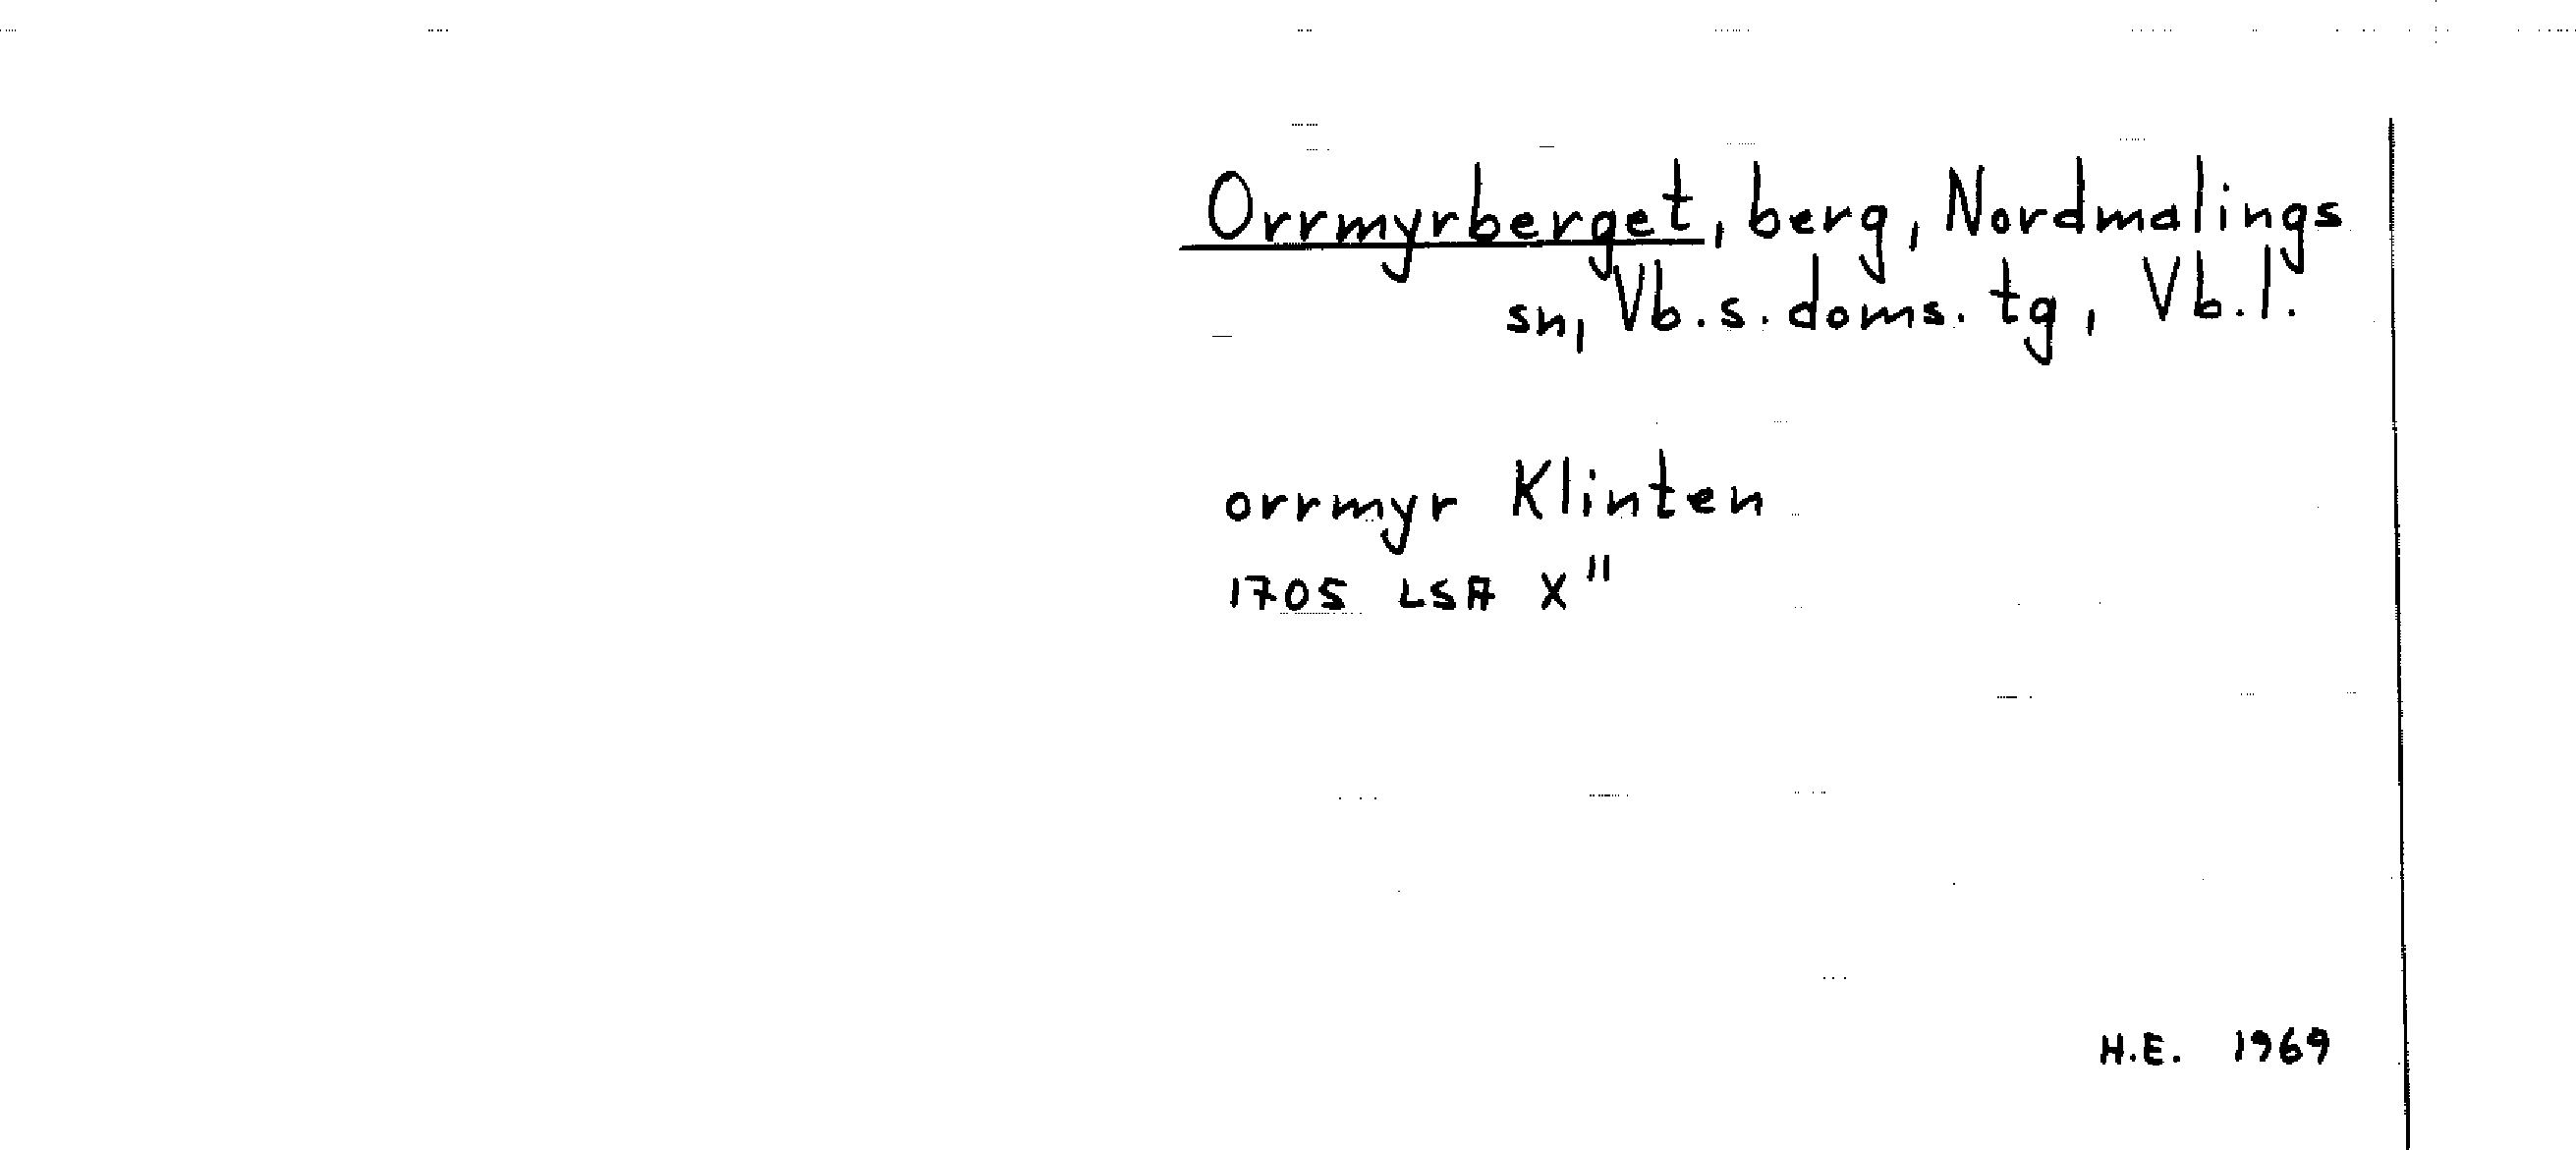 Orrmyrberget, berg, Nordmalings
sn, Vb.s.doms.tg, Vb.l.
orrmyr Klinten
1705 LSA X"
H.E. 1969